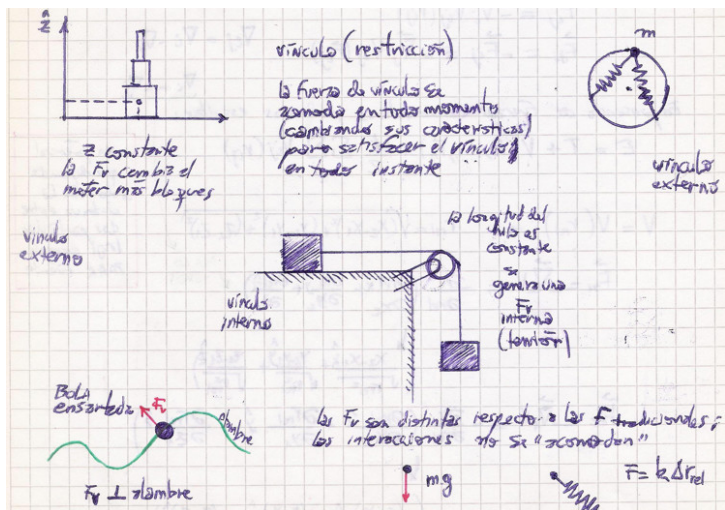 ẑ
z constante
la Fv cambia al
meter más bloques
vínculo
externo
vínculo (restricción)
la fuerza de vínculo se
acomoda en todo momento
(cambiando sus características)
para satisfacer el vínculo
en todo instante
m
vínculo
externo
la longitud del
hilo es
constante
se
genera una
Fv
interna
(tensión)
vínculo
interno
BOLA
ensartada
Fv
alambre
Fv ⊥ alambre
las Fv son distintas respecto a las F tradicionales;
las interacciones no se "acomodan"
m.g
F = k Δr rel